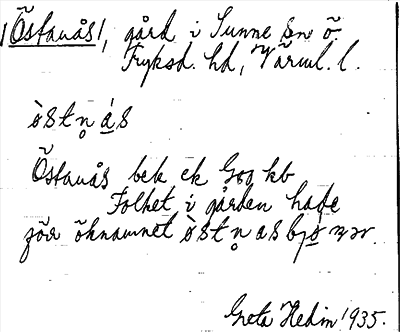 /Östanås/, gård i Sunne sn ö.
Fryksd. hd, Värml. l.
östn̥ ás
Östanås bek ek Gog kb
Folket i gården hade
förr öknamnet östn̥ as
Greta Hedin 1935.